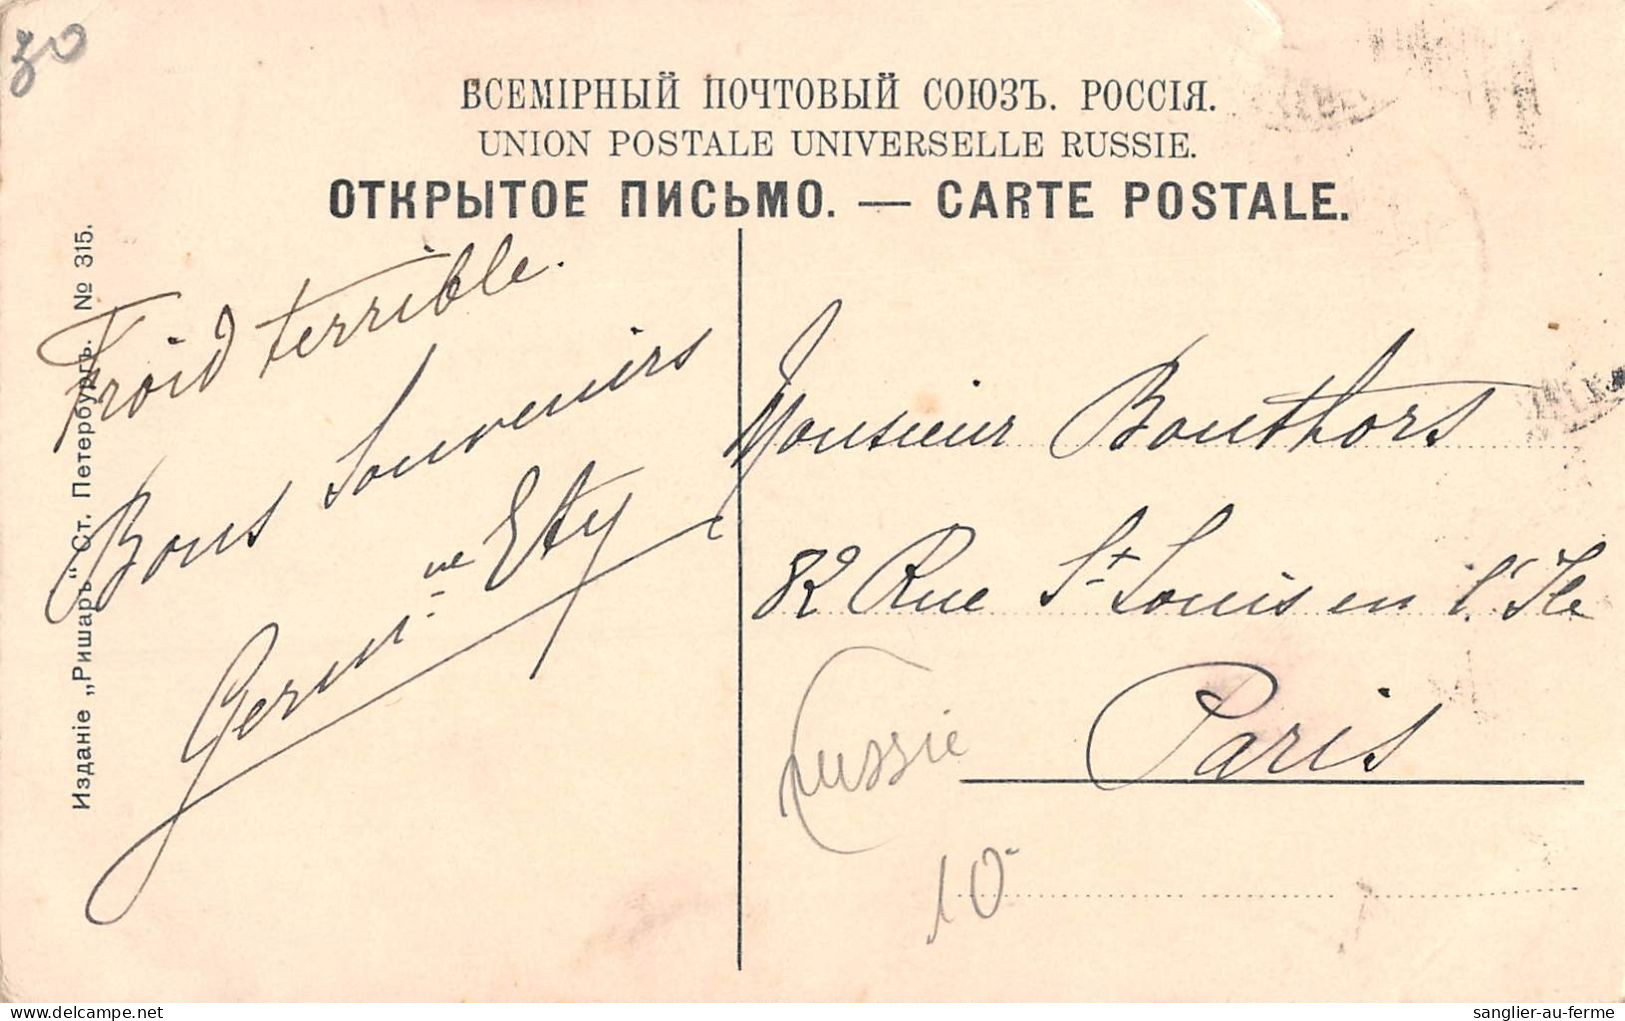 30
ВСЕМІРНЫЙ ПОЧТОВЫЙ СОЮЗЪ. РОССІЯ.
UNION POSTALE UNIVERSELLE RUSSIE.
ОТКРЫТОЕ ПИСЬМО. — CARTE POSTALE.
Изданіе „Ришаръ“ Ст. Петербургъ. № 315.
Froid terrible.
Bons Souvenirs
Germ.ne Ety
Monsieur Bouthors
82 Rue St Louis en l'Ile
Paris
Russie
10-
delcampe.net
sanglier-au-ferme